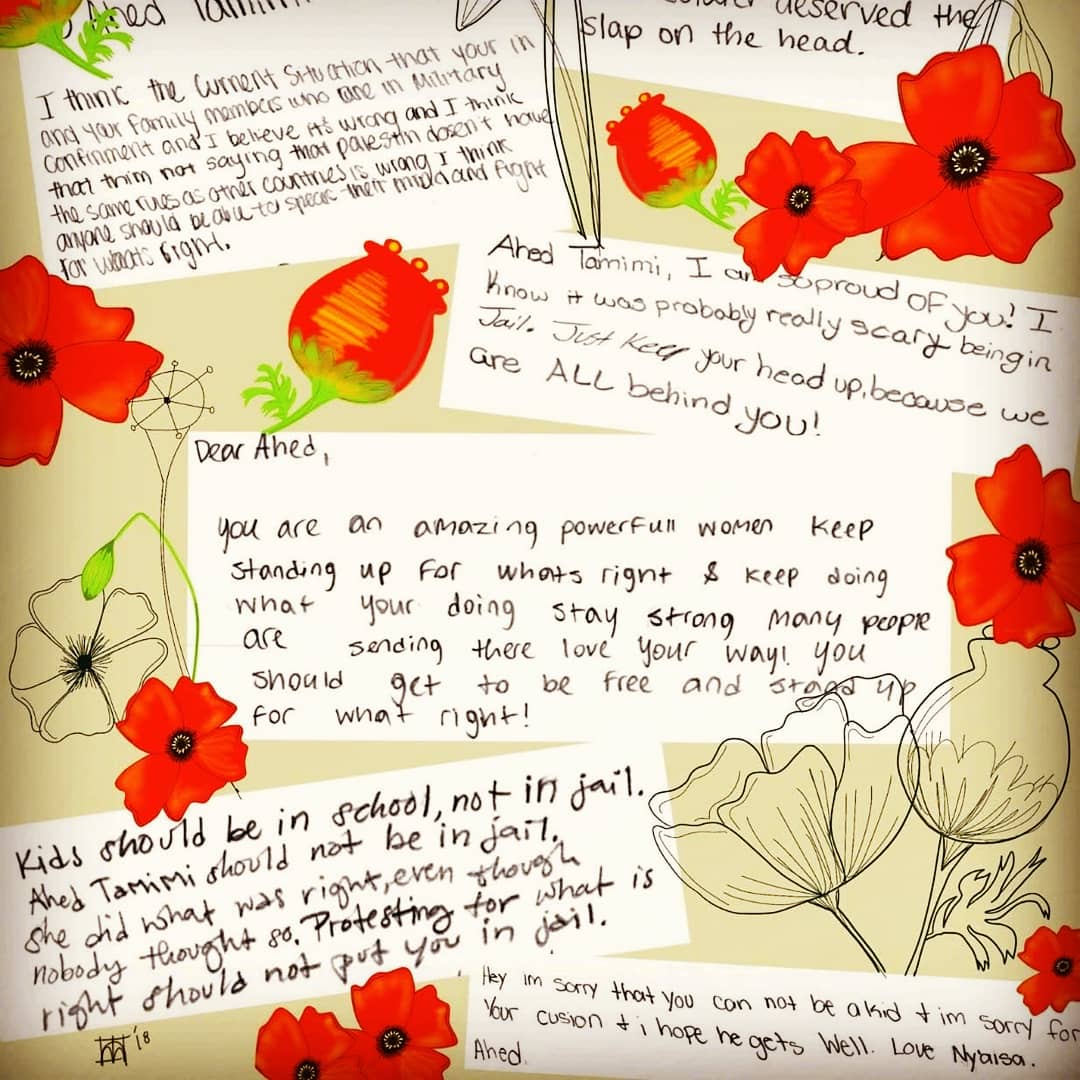 Ahed Tamimi
I think the Current Situation that your in
and your family members who are in Military
Confinment and I believe it's wrong and I think
that thim not saying that palestin dosen't have
the same rules as other countries is wrong I think
anyone should be able to speak their mind and fight
for what's right.
deserved the
slap on the head.
Ahed Tamimi, I am so proud of you! I
know it was probably really scary being in
Jail. Just Keep your head up, because we
are ALL behind you!
Dear Ahed,
you are an amazing powerfull women keep
standing up for whats right & keep doing
what your doing stay strong many people
are sending there love your way! you
should get to be free and stand up
for what right!
Kids should be in school, not in jail.
Ahed Tamimi should not be in jail.
she did what was right, even though
nobody thought so. Protesting for what is
right should not put you in jail.
'18
Hey im sorry that you can not be a kid + im sorry for
Your cusion + i hope he gets Well. Love Nyaisa.
Ahed.